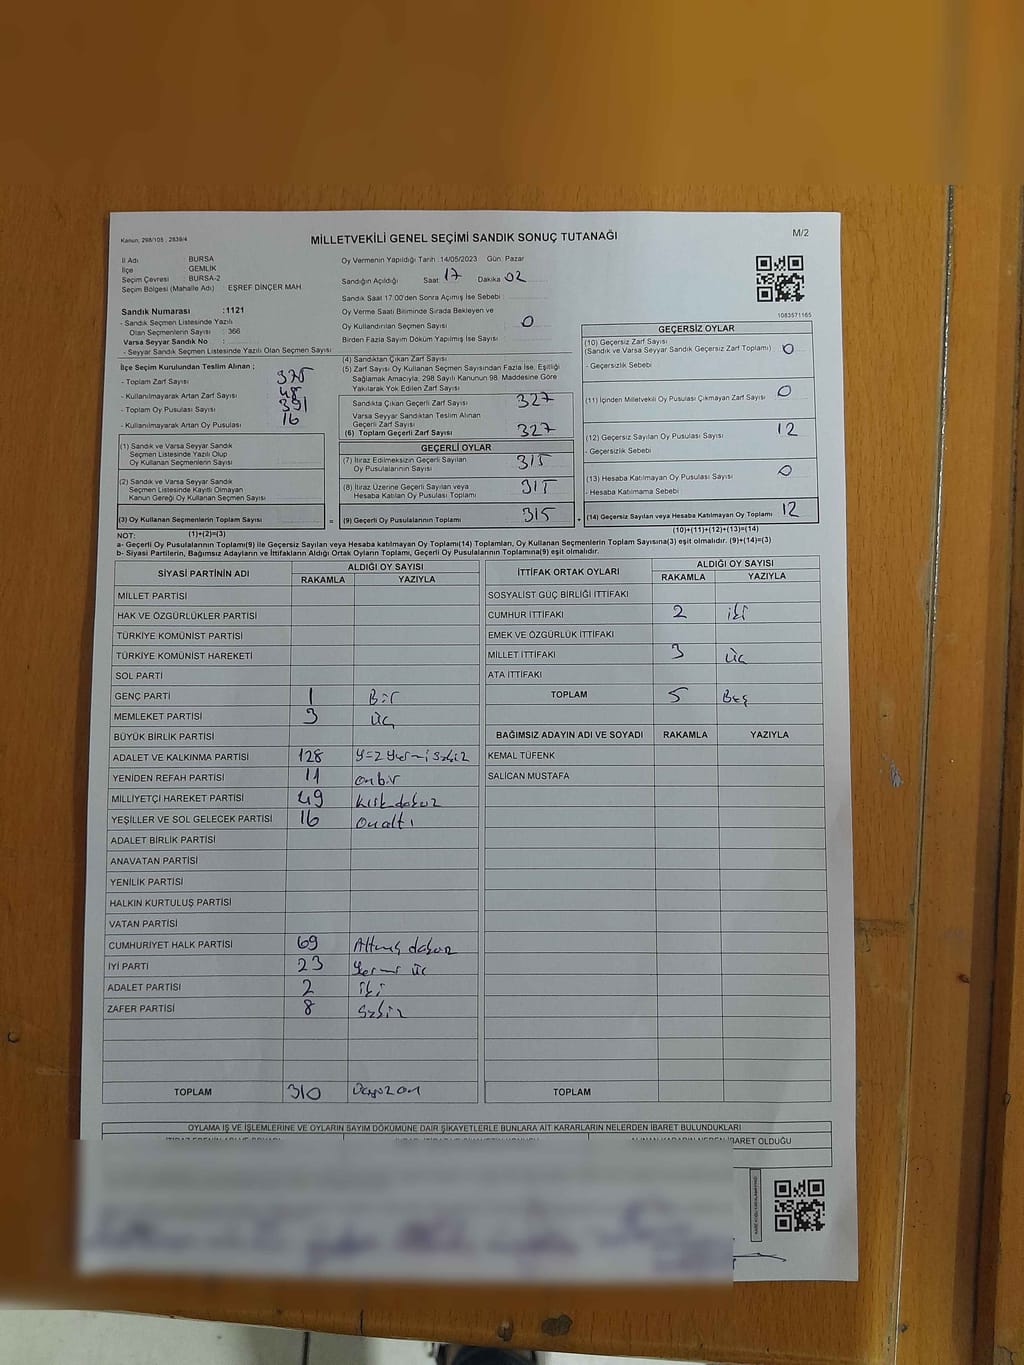 Kanun, 298/105 , 2839/4
MİLLETVEKİLİ GENEL SEÇİMİ SANDIK SONUÇ TUTANAĞI
M/2
İl Adı : BURSA
İlçe : GEMLİK
Seçim Çevresi : BURSA-2
Seçim Bölgesi (Mahalle Adı) EŞREF DİNÇER MAH.
Oy Vermenin Yapıldığı Tarih :14/05/2023 Gün: Pazar
Sandığın Açıldığı Saat 17 Dakika 02
Sandık Saat 17.00'den Sonra Açımış İse Sebebi :
Oy Verme Saati Bitiminde Sırada Bekleyen ve
Oy Kullandırılan Seçmen Sayısı : 0
Birden Fazla Sayım Döküm Yapılmış İse Sayısı :
1083571165
Sandık Numarası :1121
- Sandık Seçmen Listesinde Yazılı
Olan Seçmenlerin Sayısı : 366
Varsa Seyyar Sandık No :
- Seyyar Sandık Seçmen Listesinde Yazılı Olan Seçmen Sayısı:
İlçe Seçim Kurulundan Teslim Alınan ;
- Toplam Zarf Sayısı 375
- Kullanılmayarak Artan Zarf Sayısı 48
- Toplam Oy Pusulası Sayısı 391
- Kullanılmayarak Artan Oy Pusulası 16
(1) Sandık ve Varsa Seyyar Sandık
Seçmen Listesinde Yazılı Olup
Oy Kullanan Seçmenlerin Sayısı
(2) Sandık ve Varsa Seyyar Sandık
Seçmen Listesinde Kayıtlı Olmayan
Kanun Gereği Oy Kullanan Seçmen Sayısı
(3) Oy Kullanan Seçmenlerin Toplam Sayısı
(1)+(2)=(3)
(4) Sandıktan Çıkan Zarf Sayısı
(5) Zarf Sayısı Oy Kullanan Seçmen Sayısından Fazla İse, Eşitliği
Sağlamak Amacıyla, 298 Sayılı Kanunun 98. Maddesine Göre
Yakılarak Yok Edilen Zarf Sayısı
Sandıkta Çıkan Geçerli Zarf Sayısı 327
Varsa Seyyar Sandıktan Teslim Alınan
Geçerli Zarf Sayısı
(6) Toplam Geçerli Zarf Sayısı 327
GEÇERLİ OYLAR
(7) İtiraz Edilmeksizin Geçerli Sayılan
Oy Pusulalarının Sayısı 315
(8) İtiraz Üzerine Geçerli Sayılan veya
Hesaba Katılan Oy Pusulası Toplamı 315
= (9) Geçerli Oy Pusulalarının Toplamı 315
GEÇERSİZ OYLAR
(10) Geçersiz Zarf Sayısı
(Sandık ve Varsa Seyyar Sandık Geçersiz Zarf Toplamı) 0
- Geçersizlik Sebebi
(11) İçinden Milletvekili Oy Pusulası Çıkmayan Zarf Sayısı 0
(12) Geçersiz Sayılan Oy Pusulası Sayısı 12
- Geçersizlik Sebebi
(13) Hesaba Katılmayan Oy Pusulası Sayısı 0
- Hesaba Katılmama Sebebi
+ (14) Geçersiz Sayılan veya Hesaba Katılmayan Oy Toplamı 12
(10)+(11)+(12)+(13)=(14)
NOT:
a- Geçerli Oy Pusulalarının Toplamı(9) ile Geçersiz Sayılan veya Hesaba Katılmayan Oy Toplamı(14) Toplamları, Oy Kullanan Seçmenlerin Toplam Sayısına(3) eşit olmalıdır. (9)+(14)=(3)
b- Siyasi Partilerin, Bağımsız Adayların ve İttifakların Aldığı Ortak Oyların Toplamı, Geçerli Oy Pusulalarının Toplamına(9) eşit olmalıdır.
SİYASİ PARTİNİN ADI ALDIĞI OY SAYISI
RAKAMLA YAZIYLA
MİLLET PARTİSİ
HAK VE ÖZGÜRLÜKLER PARTİSİ
TÜRKİYE KOMÜNİST PARTİSİ
TÜRKİYE KOMÜNİST HAREKETİ
SOL PARTİ
GENÇ PARTİ 1 Bir
MEMLEKET PARTİSİ 3 Üç
BÜYÜK BİRLİK PARTİSİ
ADALET VE KALKINMA PARTİSİ 128 Yüz Yirmi Sekiz
YENİDEN REFAH PARTİSİ 11 onbir
MİLLİYETÇİ HAREKET PARTİSİ 49 kırk dokuz
YEŞİLLER VE SOL GELECEK PARTİSİ 16 Onaltı
ADALET BİRLİK PARTİSİ
ANAVATAN PARTİSİ
YENİLİK PARTİSİ
HALKIN KURTULUŞ PARTİSİ
VATAN PARTİSİ
CUMHURİYET HALK PARTİSİ 69 Altmış dokuz
İYİ PARTİ 23 Yirmi üç
ADALET PARTİSİ 2 iki
ZAFER PARTİSİ 8 Sekiz
TOPLAM 310 Üçyüz on
İTTİFAK ORTAK OYLARI ALDIĞI OY SAYISI
RAKAMLA YAZIYLA
SOSYALİST GÜÇ BİRLİĞİ İTTİFAKI
CUMHUR İTTİFAKI 2 iki
EMEK VE ÖZGÜRLÜK İTTİFAKI
MİLLET İTTİFAKI 3 Üç
ATA İTTİFAKI
TOPLAM 5 Beş
BAĞIMSIZ ADAYIN ADI VE SOYADI RAKAMLA YAZIYLA
KEMAL TÜFENK
SALİCAN MUSTAFA
TOPLAM
OYLAMA İŞ VE İŞLEMLERİNE VE OYLARIN SAYIM DÖKÜMÜNE DAİR ŞİKAYETLERLE BUNLARA AİT KARARLARIN NELERDEN İBARET BULUNDUKLARI